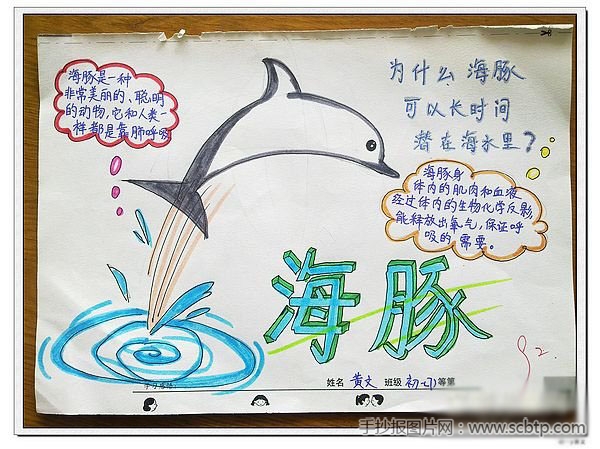 海豚是一种
非常美丽的、聪明
的动物,它和人类一
样都是靠肺呼吸
为什么海豚
可以长时间
潜在海水里?
海豚身
体内的肌肉和血液
经过体内的生物化学反影
能释放出氧气,保证呼
吸的需要。
海豚
92.
姓名 黄文 班级 初一(1) 等第
手抄报图片网:www.scbtp.com